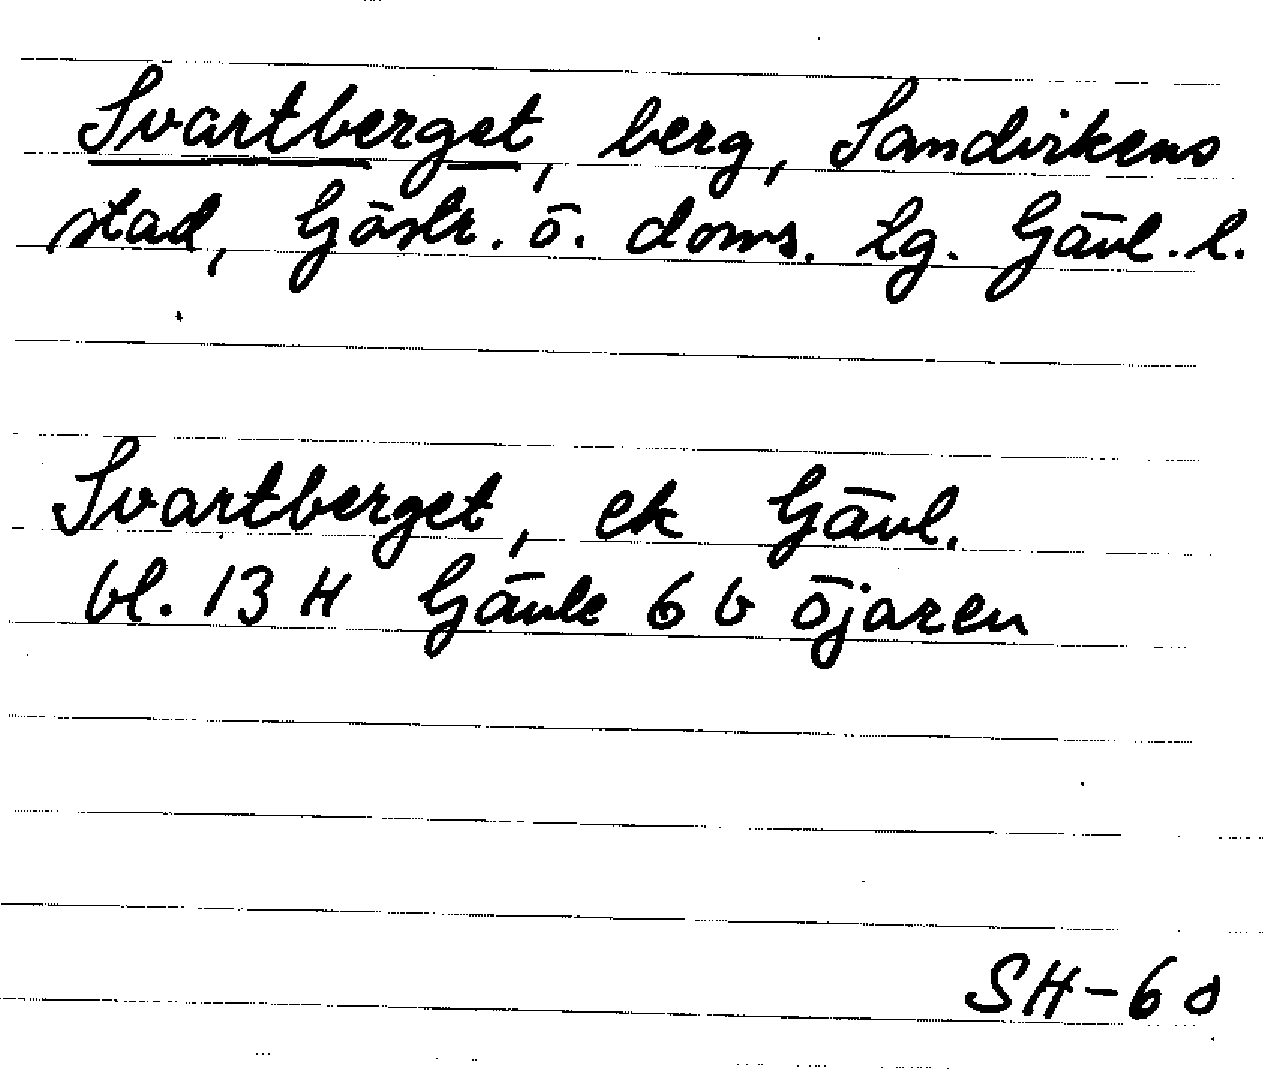 Svartberget, berg, Sandvikens
stad, Gästr. ö. doms. lg. Gävl. l.
Svartberget, ek Gävl.
bl. 13 H Gävle 6 b Öjaren
SH-68